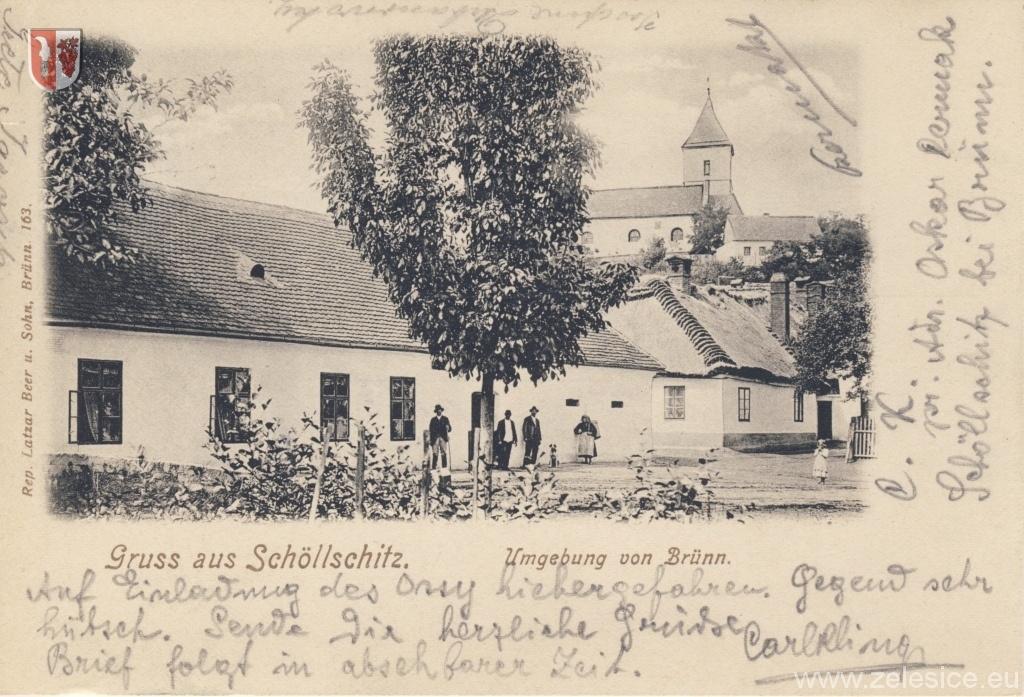 Gruss aus Schöllschitz.
Umgebung von Brünn.
Auf Einladung des Ossy hiehergefahren. Gegend sehr
hübsch. Sende Dir herzliche
Brief folgt in absehbarer Zeit.
Carl Kling
C. K.
Adr. Oskar
Schöllschitz bei Brünn.
Rep. Latzar Beer u. Sohn, Brünn 163.
www.zelesice.eu